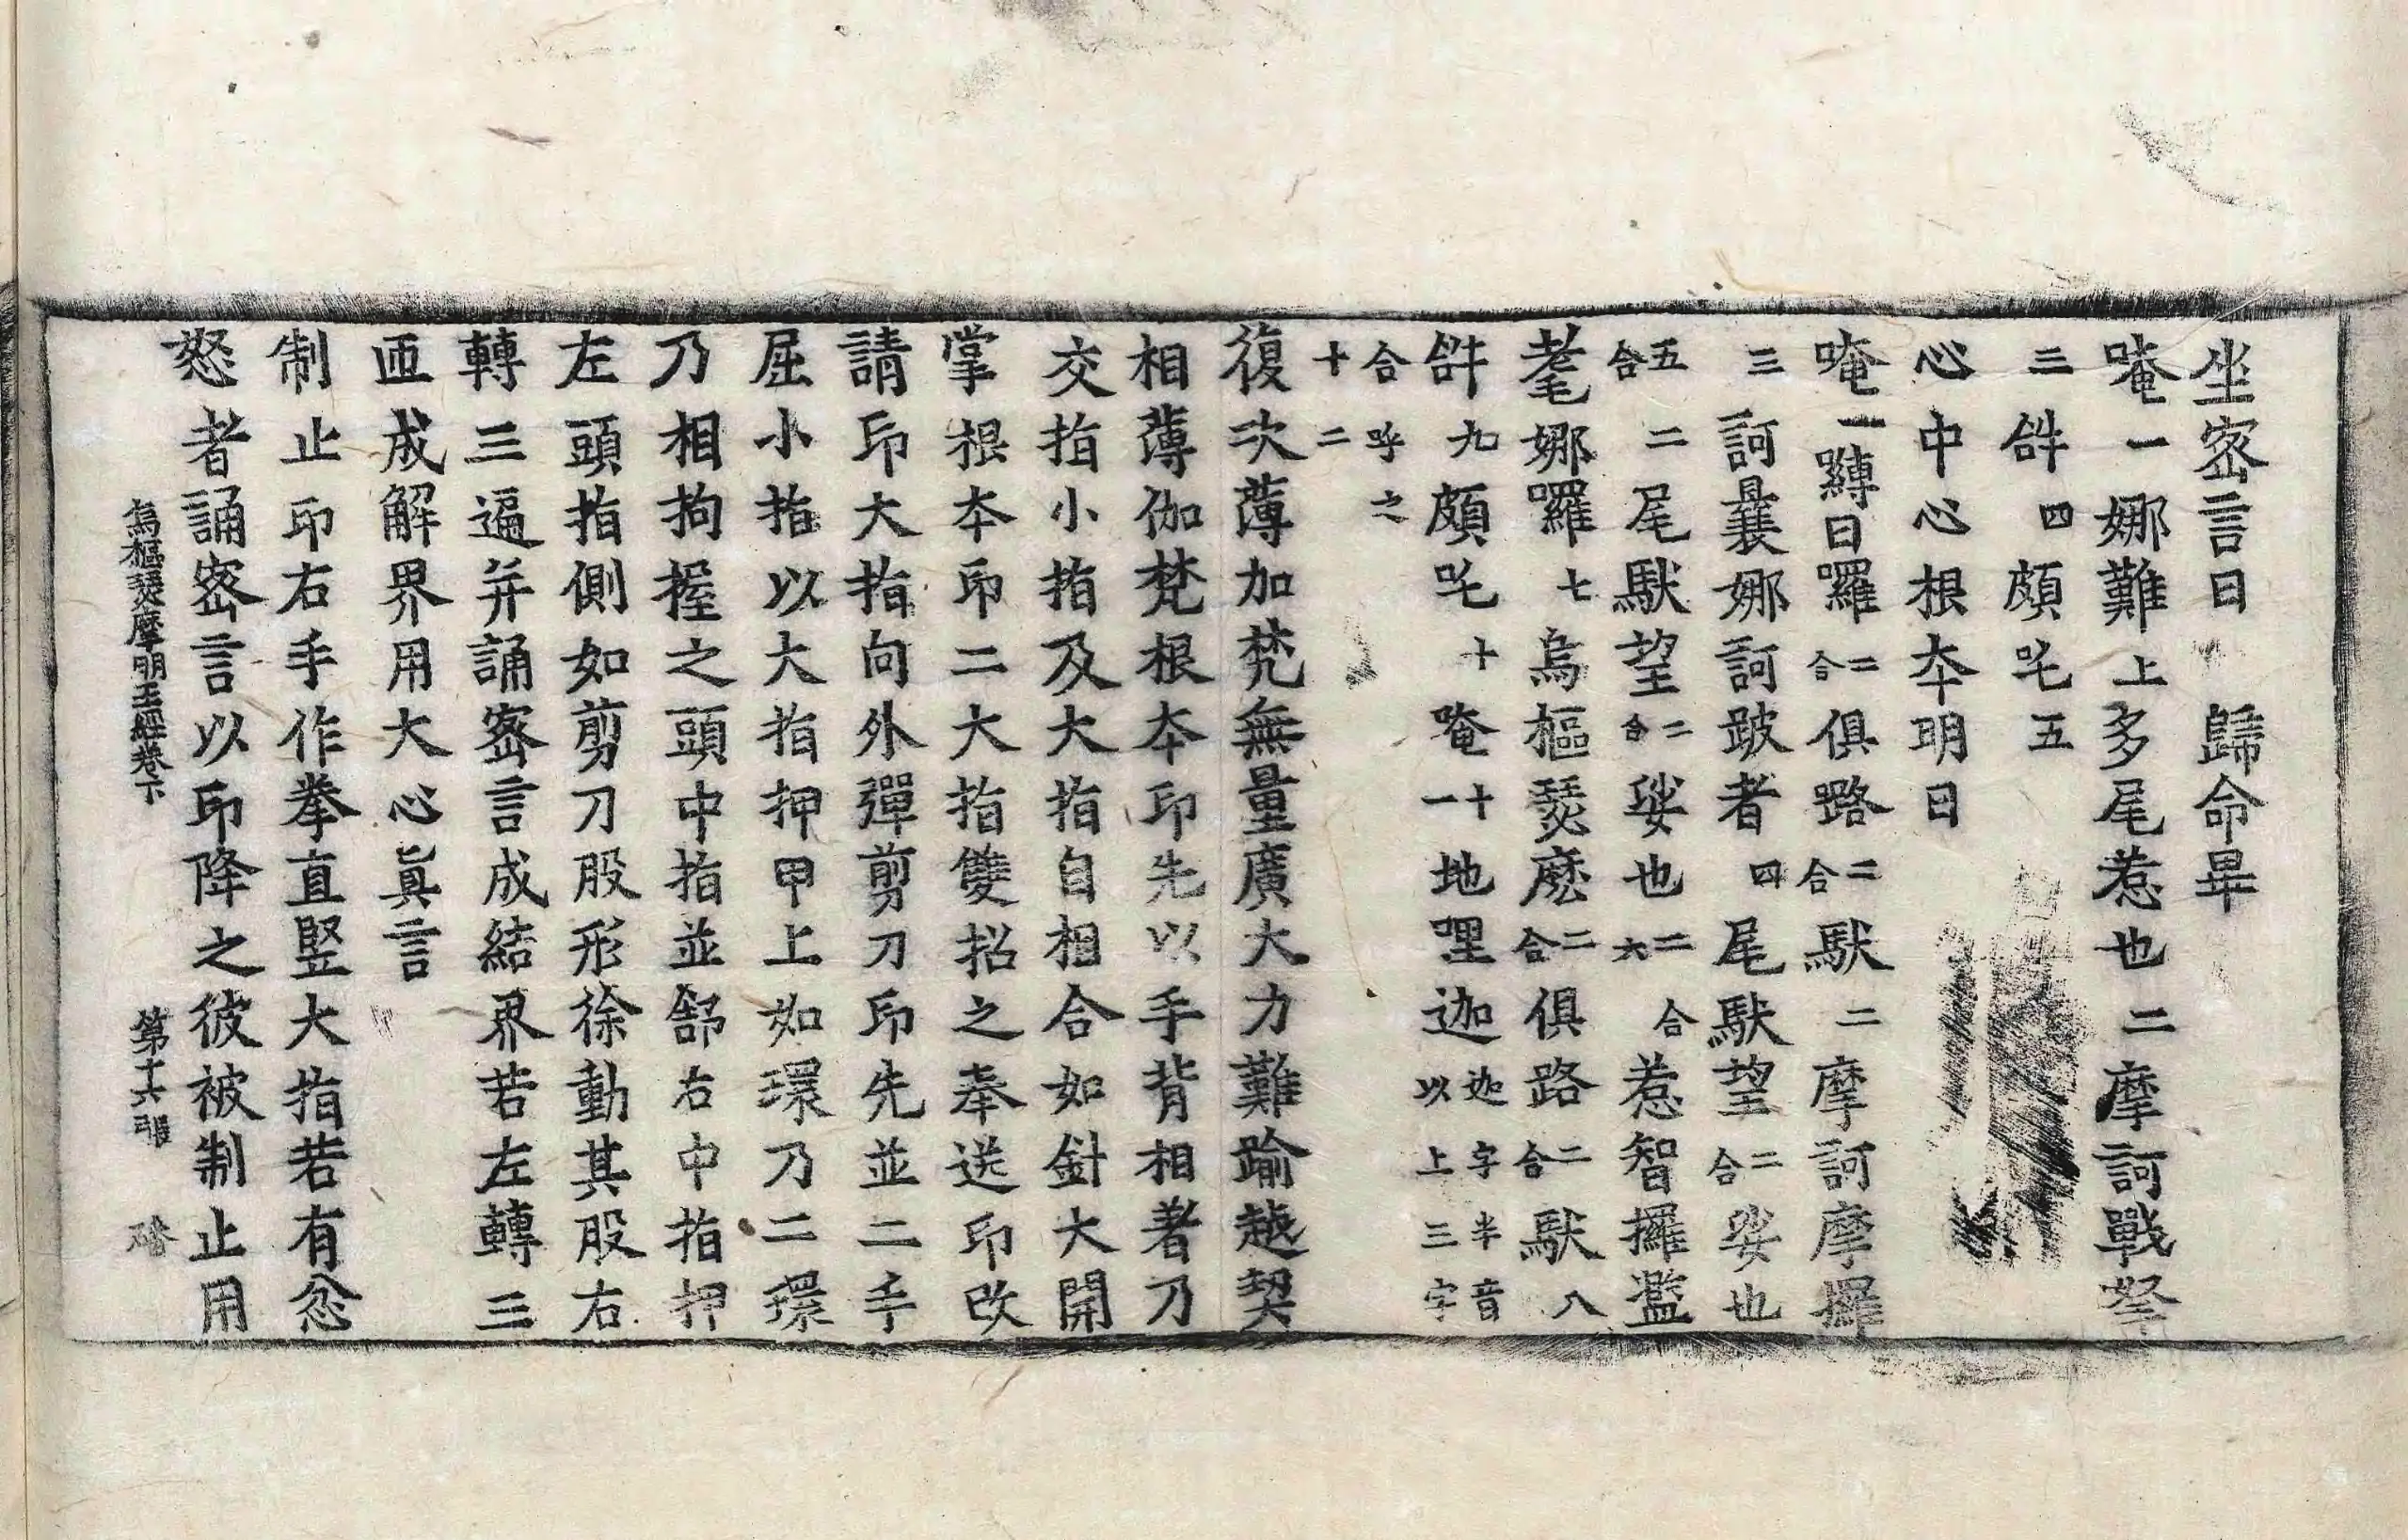 坐密言曰　歸命畢
唵一娜難上多尾惹也二摩訶戰拏
三𤙖四頗吒五
心中心根本明曰
唵一嚩日囉二合俱路二合馱二摩訶摩攞
三訶曩娜訶跛者四尾馱望二合娑也
五二合尾馱望二合娑也二六合惹智攞濫
耄娜囉七烏樞瑟麽二合俱路二合馱八
𤙖九頗吒十唵十一地哩迦迦字半音以上三字
合呼之
十二
復次薄加梵無量廣大力難踰越契
相薄伽梵根本印先以手背相著乃
交指小指及大指自相合如針大開
掌根本印二大指雙招之奉送印改
請印大指向外彈剪刀印先並二手
屈小指以大指押甲上如環乃二環
乃相拘握之頭中指並舒右中指押
左頭指側如剪刀股形徐動其股右
轉三遍并誦密言成結界若左轉三
匝成解界用大心眞言
制止印右手作拳直竪大指若有忿
怒者誦密言以印降之彼被制止用
烏樞瑟摩明王經卷下　第十六張